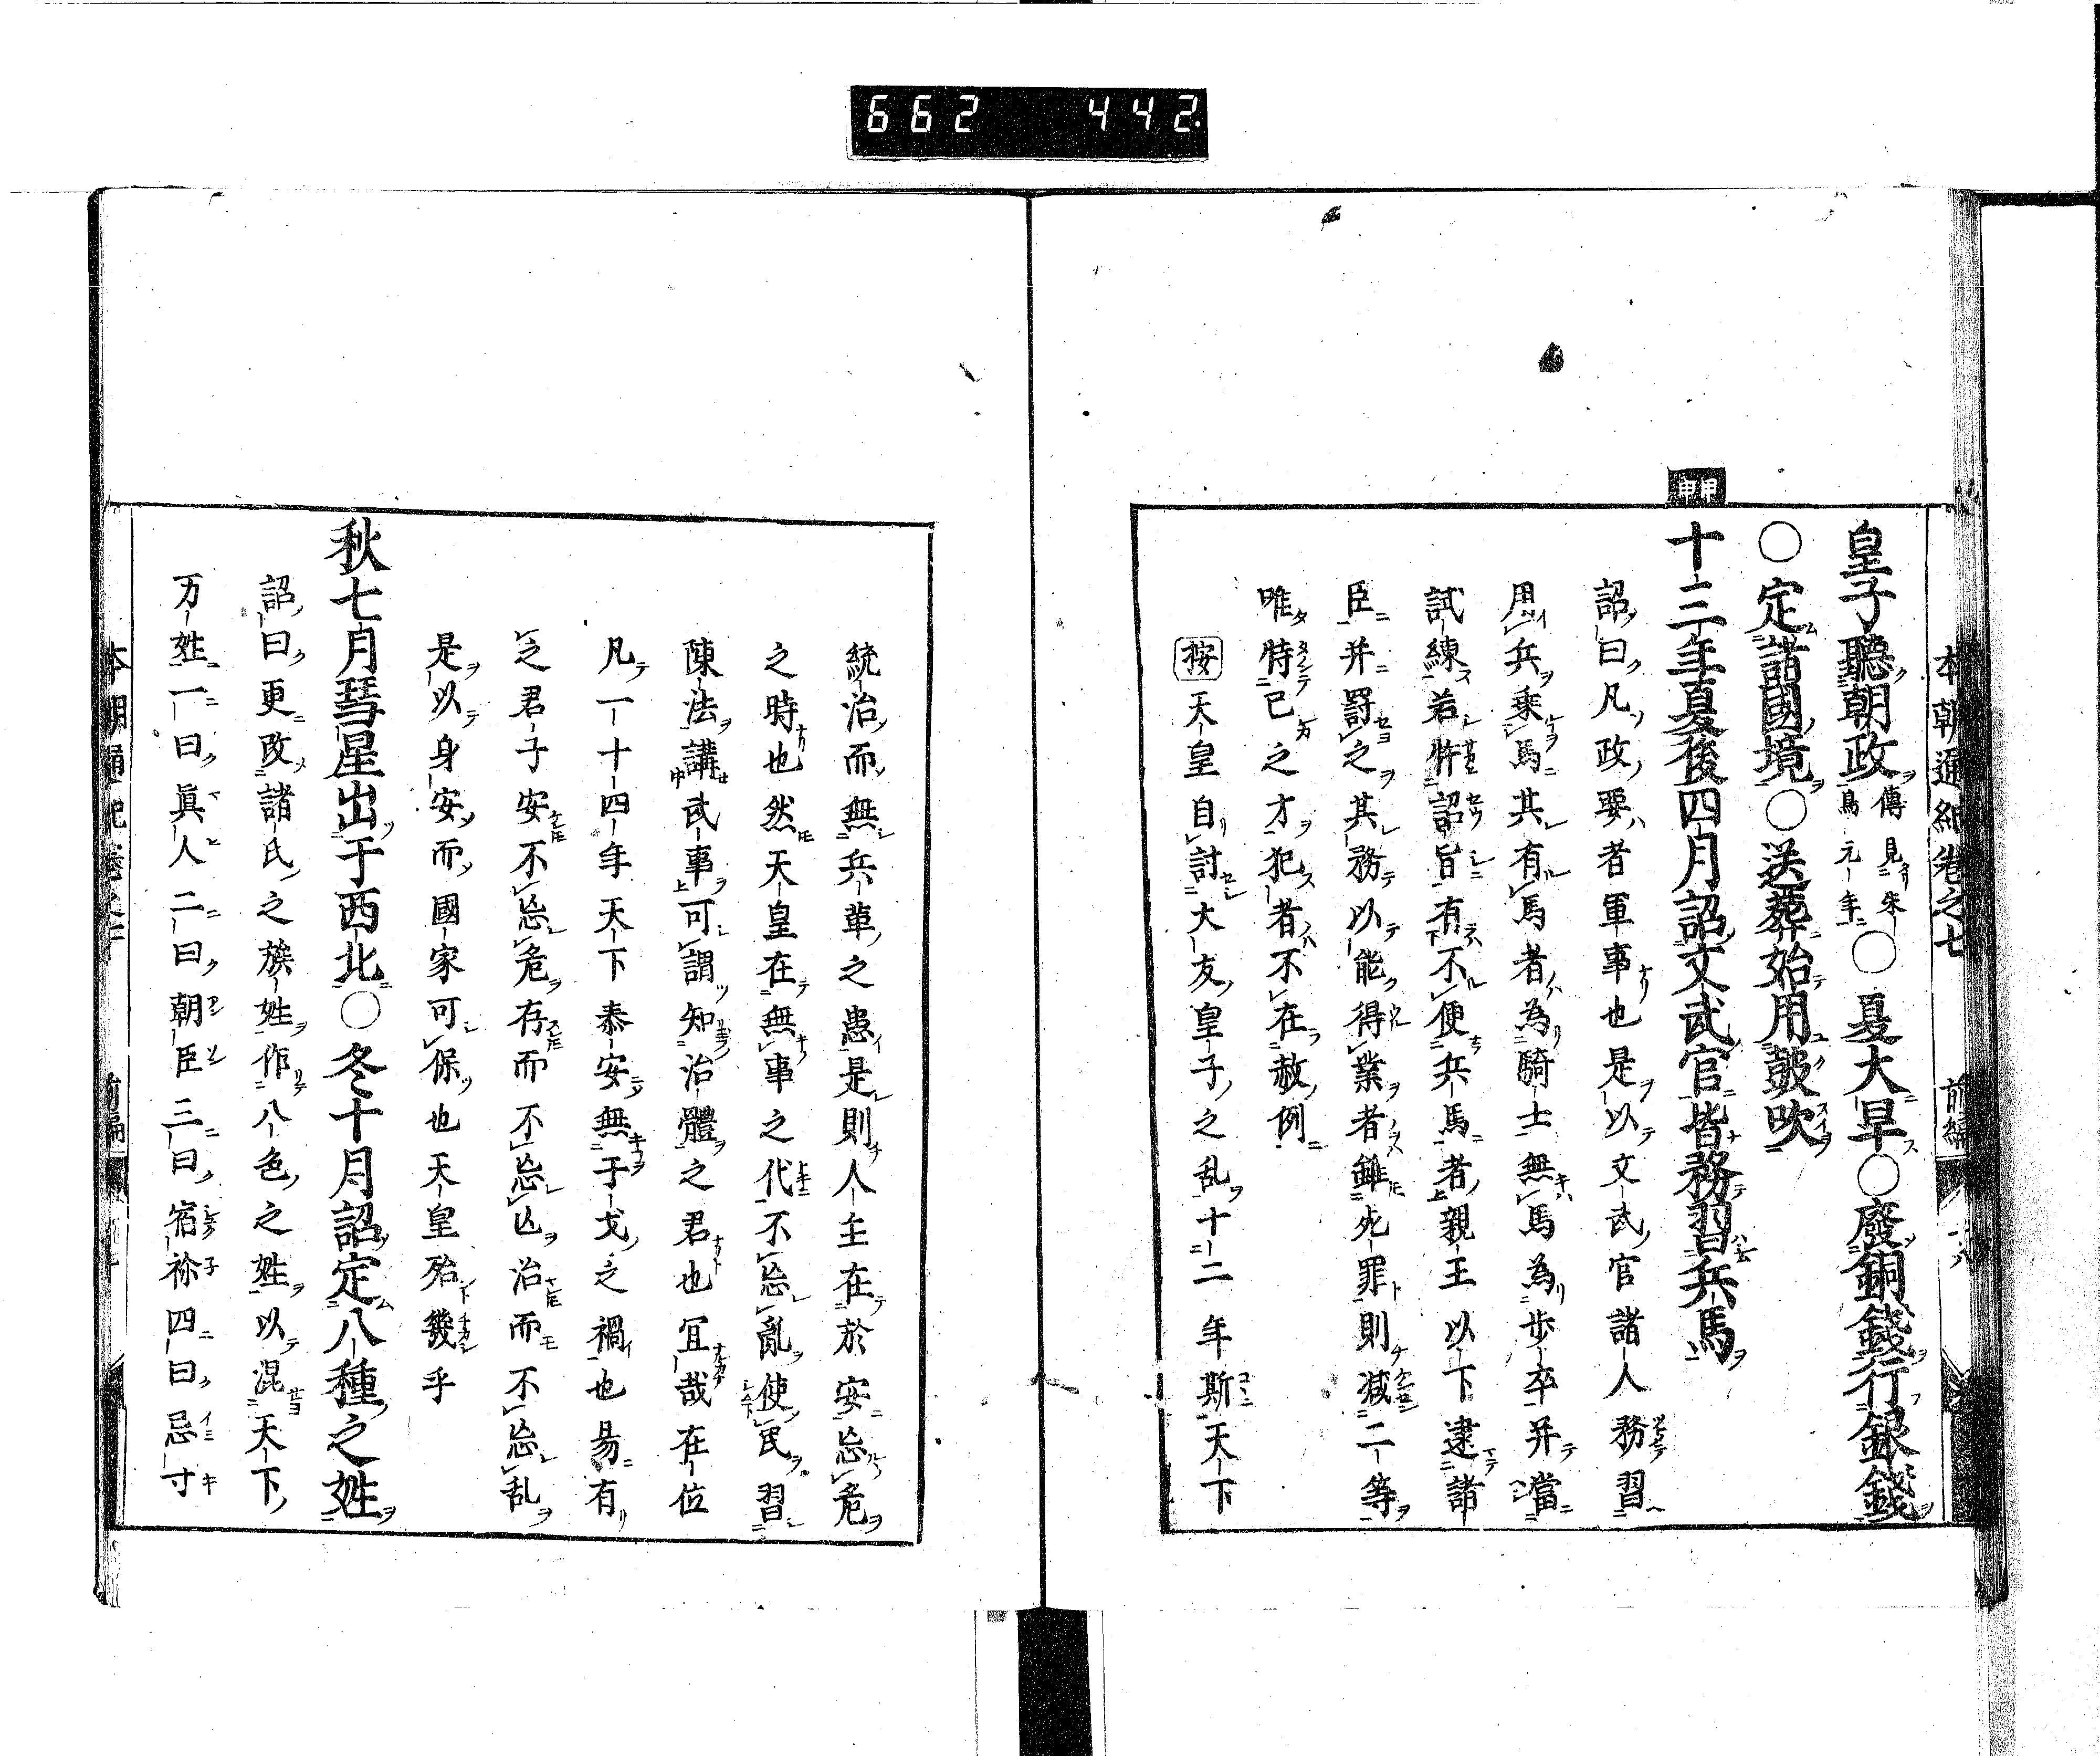 662 442
本朝通紀卷之七 前編 十八
皇子聽朝政傳見朱鳥元年○夏大旱○廢銅錢行銀錢
○定諸國境○送葬始用鼓吹
甲申
十三年夏後四月詔文武官皆務習兵馬
詔曰凡政要者軍事也是以文武官諸人務習
用兵乘馬其有馬者為騎士無馬為步卒并當
試練若忤詔旨有不便兵馬者親王以下逮諸
臣并罸之其務以能得業者雖死罪則減二等
唯恃己之才犯者不在赦例
按天皇自討大友皇子之乱十二年斯天下
統治而無兵革之患是則人主在於安忘危
之時也然天皇在無事之代不忘亂使民習
陳法講武事可謂知治體之君也宜哉在位
凡一十四年天下泰安無干戈之禍也易有
之君子安不忘危存而不忘亡治而不忘乱
是以身安而國家可保也天皇殆幾乎
秋七月彗星出于西北○冬十月詔定八種之姓
詔曰更改諸氏之族姓作八色之姓以混天下
万姓一曰眞人二曰朝臣三曰宿祢四曰忌寸
本朝通紀卷之七 前編